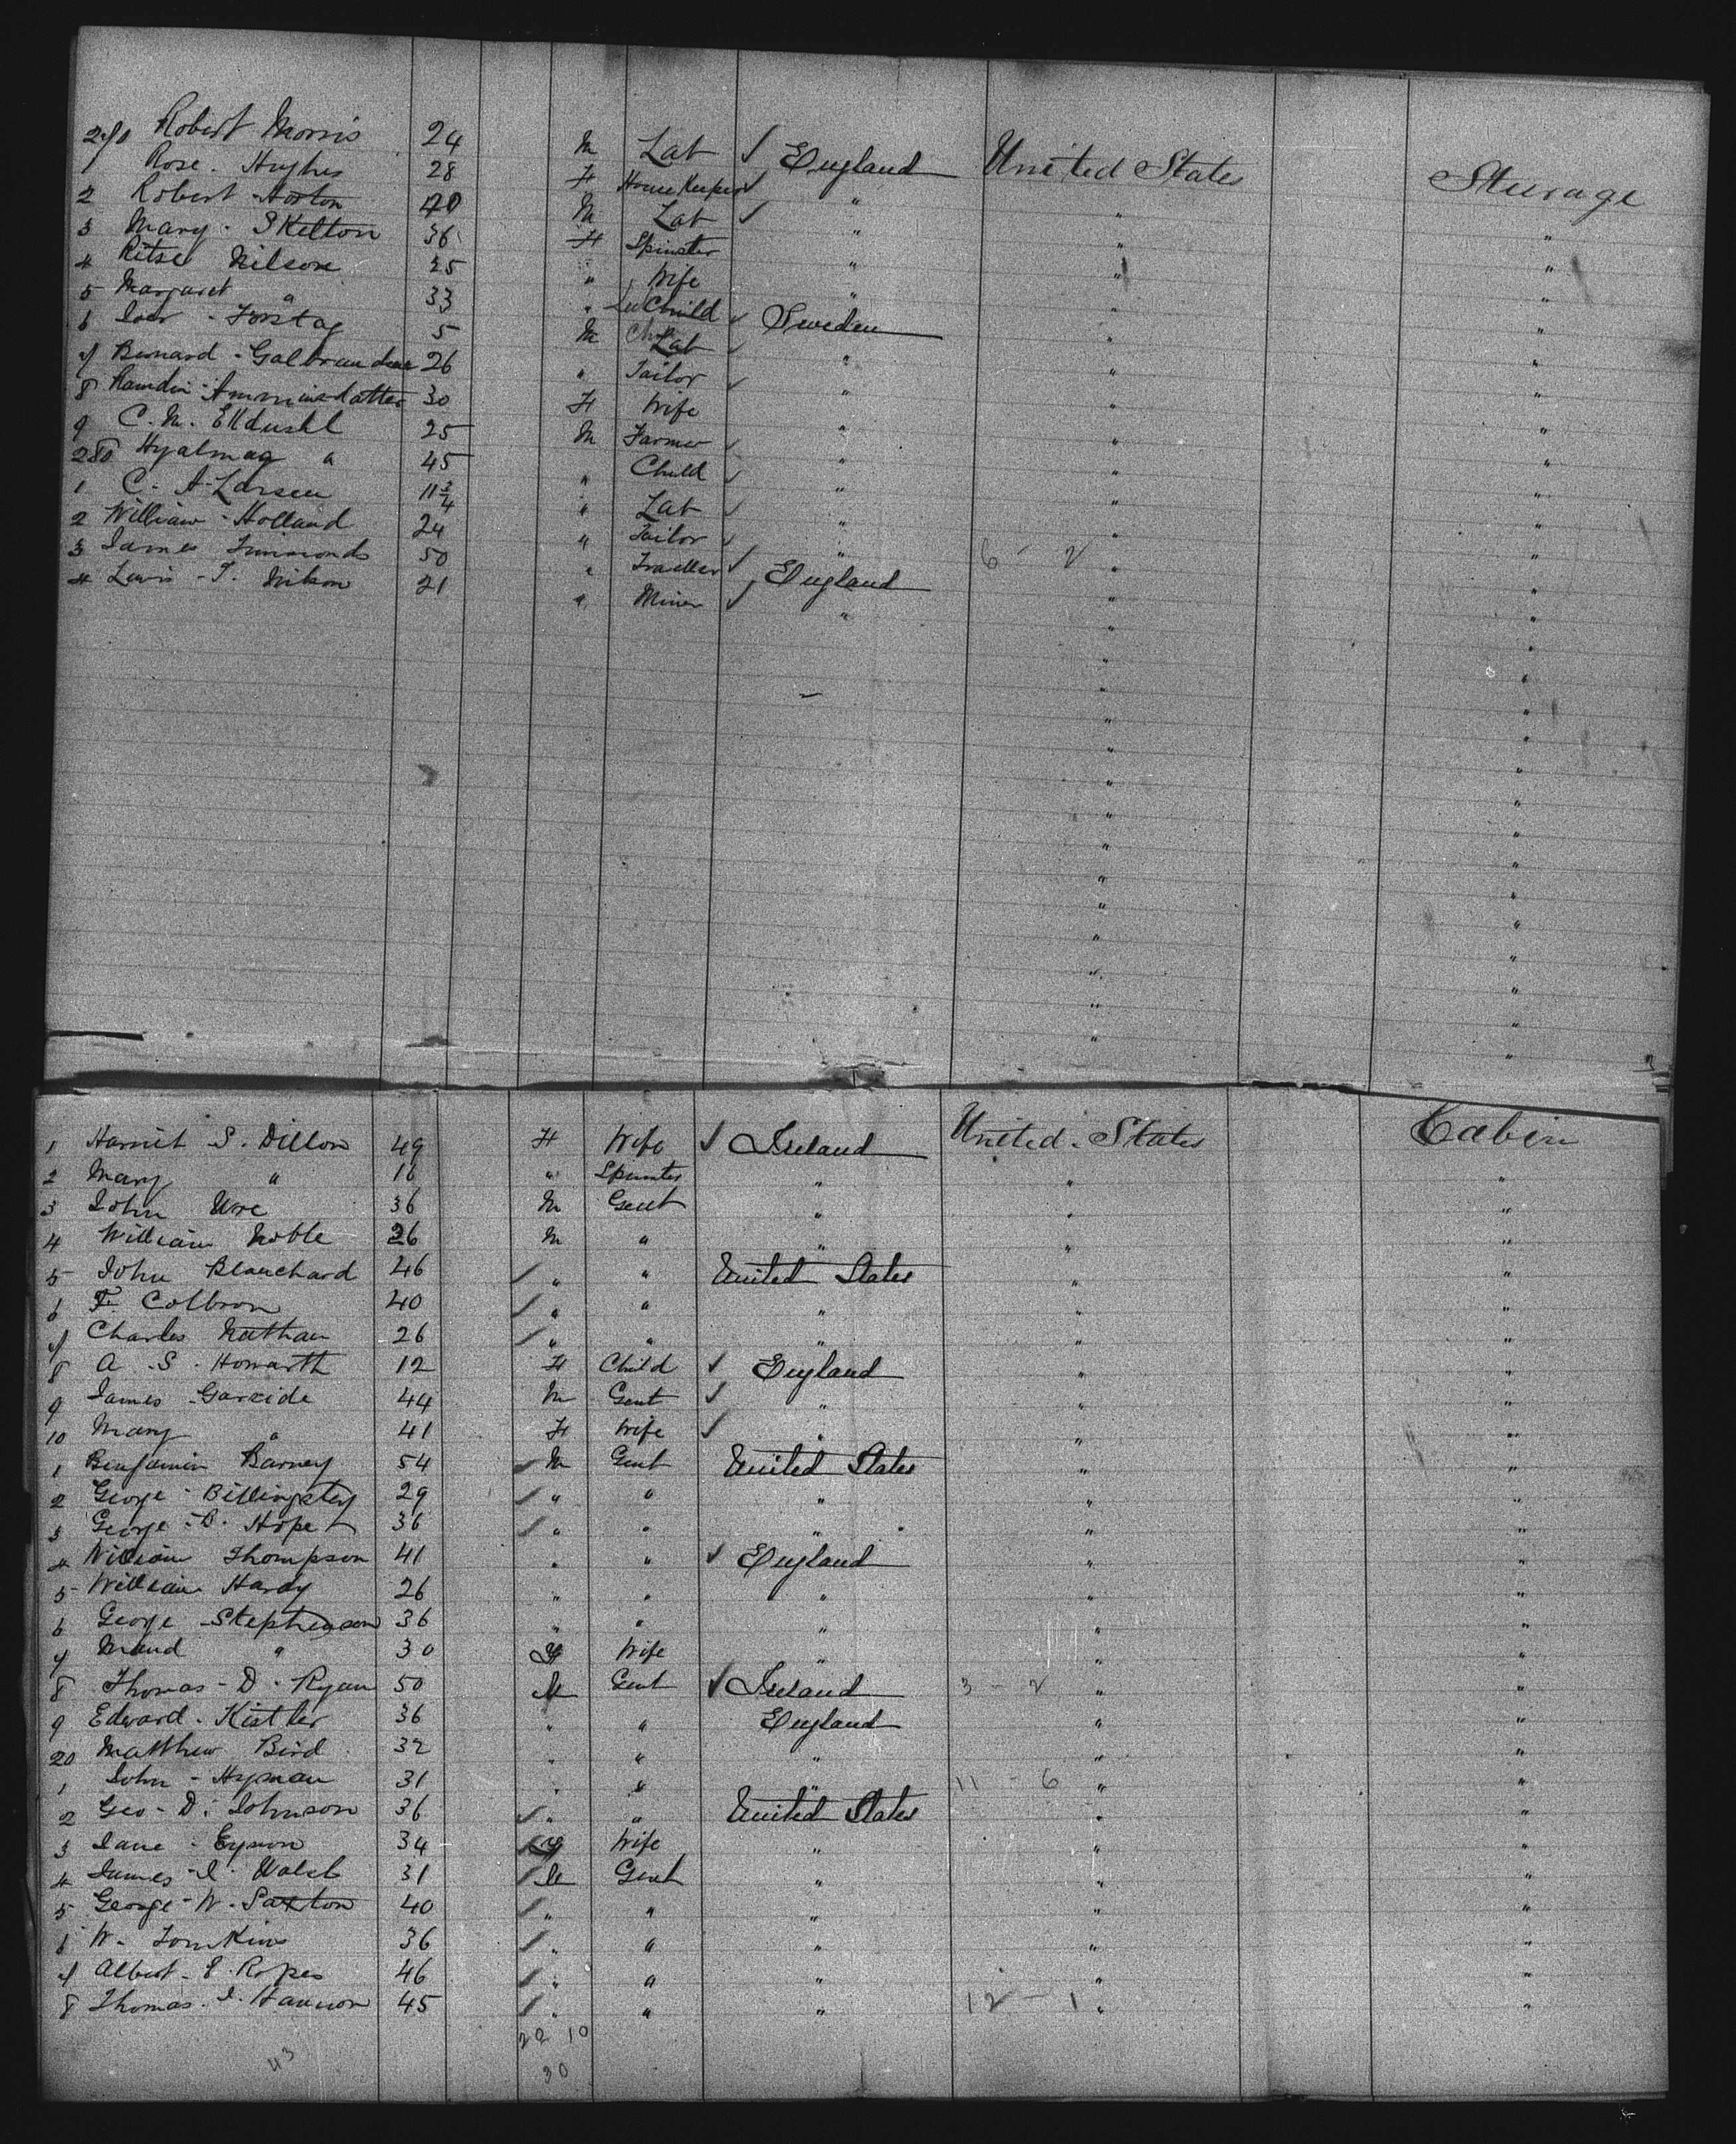 270 Robert Morris 24 M Lab ✓ England United States Steerage
1 Rose Hughes 28 F House Keeper ✓ " " "
2 Robert Horton 40 M Lab ✓ " " "
3 Mary Skelton 36 F Spinster " " "
4 Nilson 25 " Wife " " "
5 Margaret " 33 " Child ✓ Sweden " "
6 5 M Lab ✓ " " "
7 Bernard 26 " Tailor ✓ " " "
8 30 F Wife " " "
9 C. M. 25 M Farmer ✓ " " "
280 " 45 " Child ✓ " " "
1 C. A. Larsen 11 3/4 " Lab ✓ " " "
2 William Holland 24 " Tailor ✓ " " "
3 James Simmonds 50 " Traveller ✓ England 6 - 2 " "
4 Lewis T. 21 " Miner ✓ " " "
1 Harriet S. Dillon 49 F Wife ✓ Ireland United States Cabin
2 Mary " 16 " Spinster " " "
3 John Ure 36 M Gent " " "
4 William Noble 26 M " " " "
5 John Blanchard 46 " " United States " "
6 F. Colbron 40 " " " " "
7 Charles Nathan 26 " " " " "
8 A. S. Howarth 12 F Child ✓ England " "
9 James Garside 44 M Gent ✓ " " "
10 Mary " 41 F Wife ✓ " " "
1 Benjamin Barney 54 M Gent United States " "
2 George Billingsley 29 " " " " "
3 George B. Hope 36 " " " " "
4 William Thompson 41 " " ✓ England " "
5 William Hardy 26 " " " " "
6 George Stephenson 36 " " " " "
7 Maud " 30 F Wife " " "
8 Thomas D. Ryan 50 M Gent ✓ Ireland 3 - 2 " "
9 Edward Kistler 36 " " England " "
20 Matthew Bird 32 " " " " "
1 John Hyman 31 " " " 11 - 6 " "
2 Geo. D. Johnson 36 " " United States " "
3 Jane Eynon 34 F Wife " " "
4 James J. Walsh 31 M Gent " " "
5 George W. Saxton 40 " " " " "
6 W. Tomkins 36 " " " " "
7 Albert E. Ropes 46 " " " " "
8 Thomas J. Hannon 45 " " " 12 - 1 " "
22 10
43 30